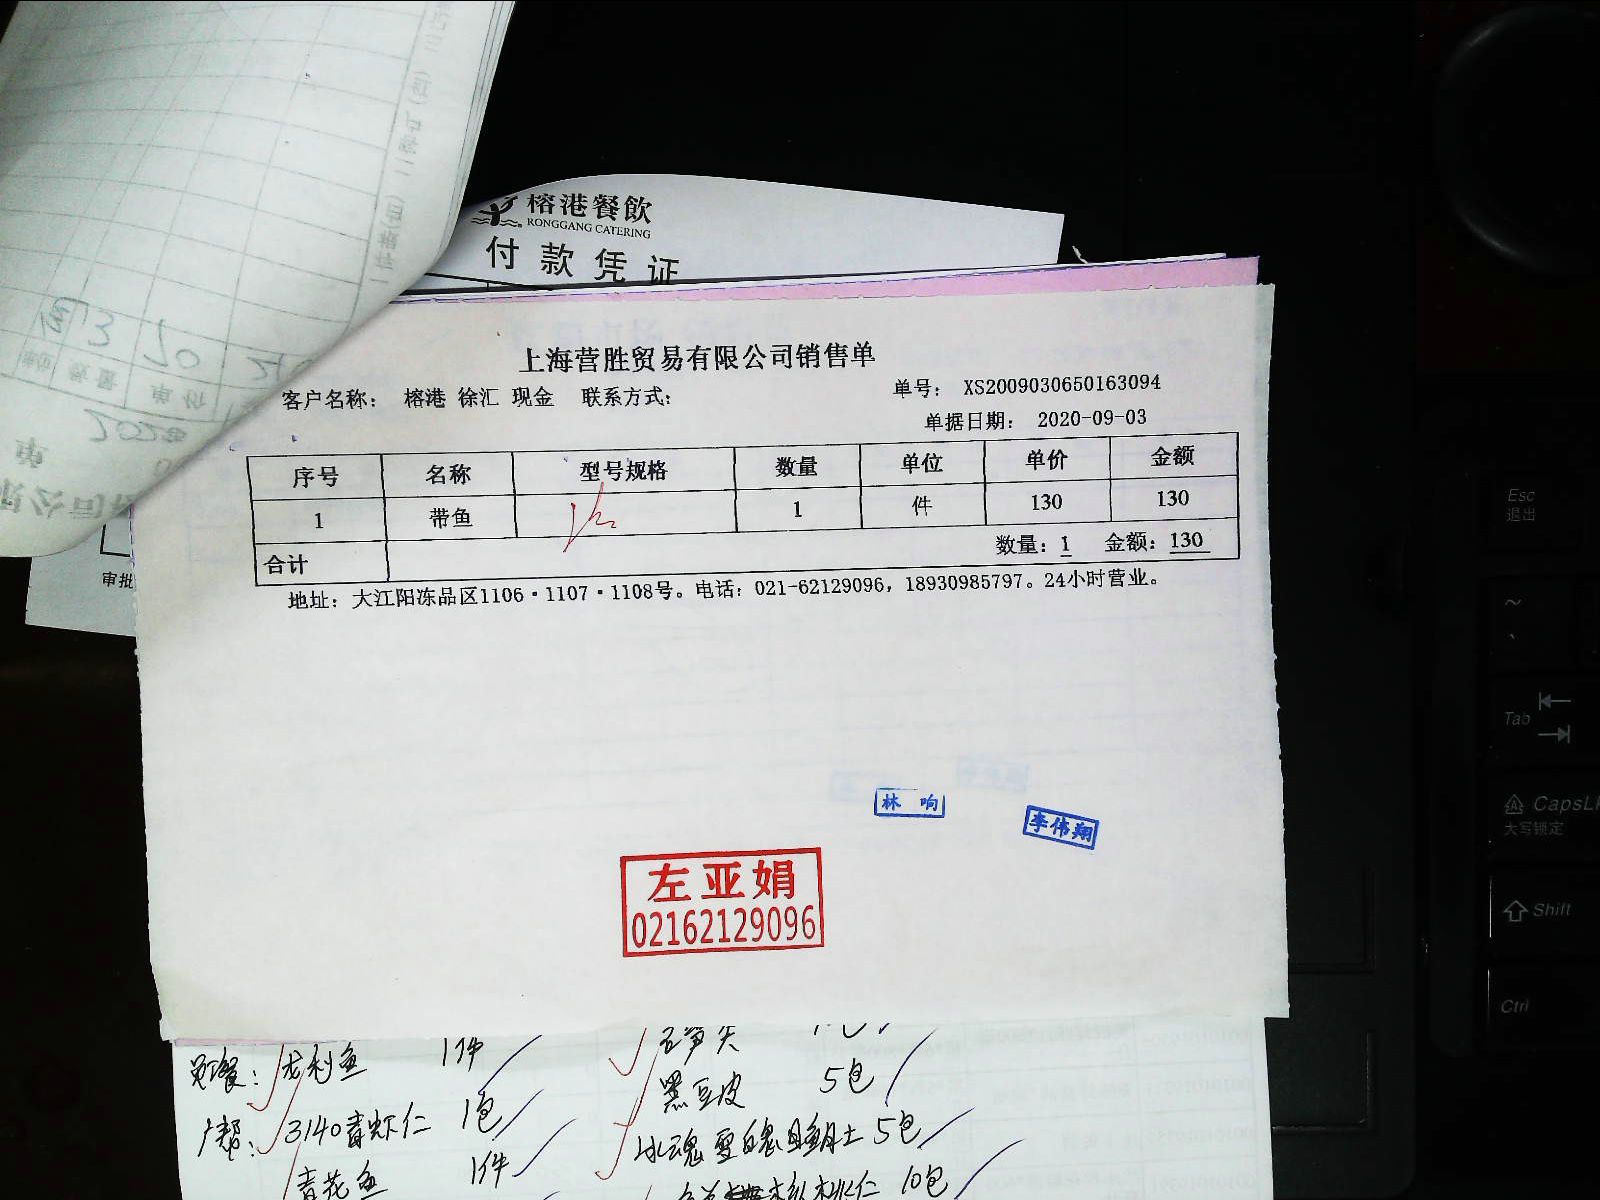 榕港餐飲
RONGGANG CATERING
付款凭证
上海营胜贸易有限公司销售单
客户名称： 榕港 徐汇 现金 联系方式：
单号： XS2009030650163094
单据日期： 2020-09-03
序号 名称 型号规格 数量 单位 单价 金额
1 带鱼 1 件 130 130
合计 数量：1 金额：130
地址：大江阳冻品区1106·1107·1108号。电话：021-62129096，18930985797。24小时营业。
审批
林 响
李伟翔
左亚娟
02162129096
龙利鱼 1件
3140青虾仁 1包
青花鱼 1件
黑豆皮 5包
5包
10包
Esc
退出
~
Tab
CapsL
大写锁定
Shift
Ctrl